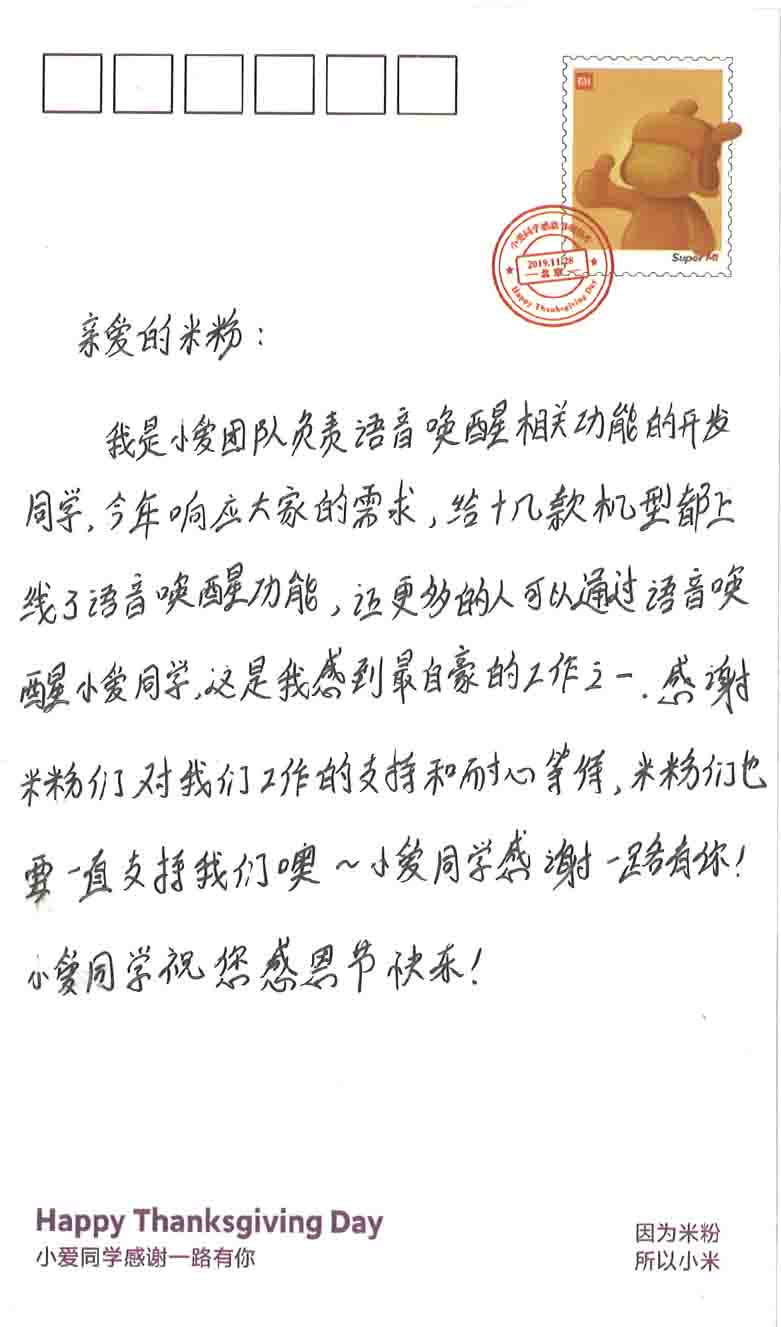 MI
Super MI
2019.11.28
北京
Happy Thanksgiving Day
亲爱的米粉：
我是小爱团队负责语音唤醒相关功能的开发
同学，今年响应大家的需求，给十几款机型都上
线了语音唤醒功能，让更多的人可以通过语音唤
醒小爱同学，这是我感到最自豪的工作之一．感谢
米粉们对我们工作的支持和耐心等待，米粉们也
要一直支持我们噢～小爱同学感谢一路有你！
小爱同学祝您感恩节快乐！
Happy Thanksgiving Day
小爱同学感谢一路有你
因为米粉
所以小米